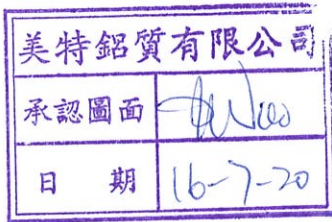 美特鋁質有限公司
承認圖面
日期 16-7-20